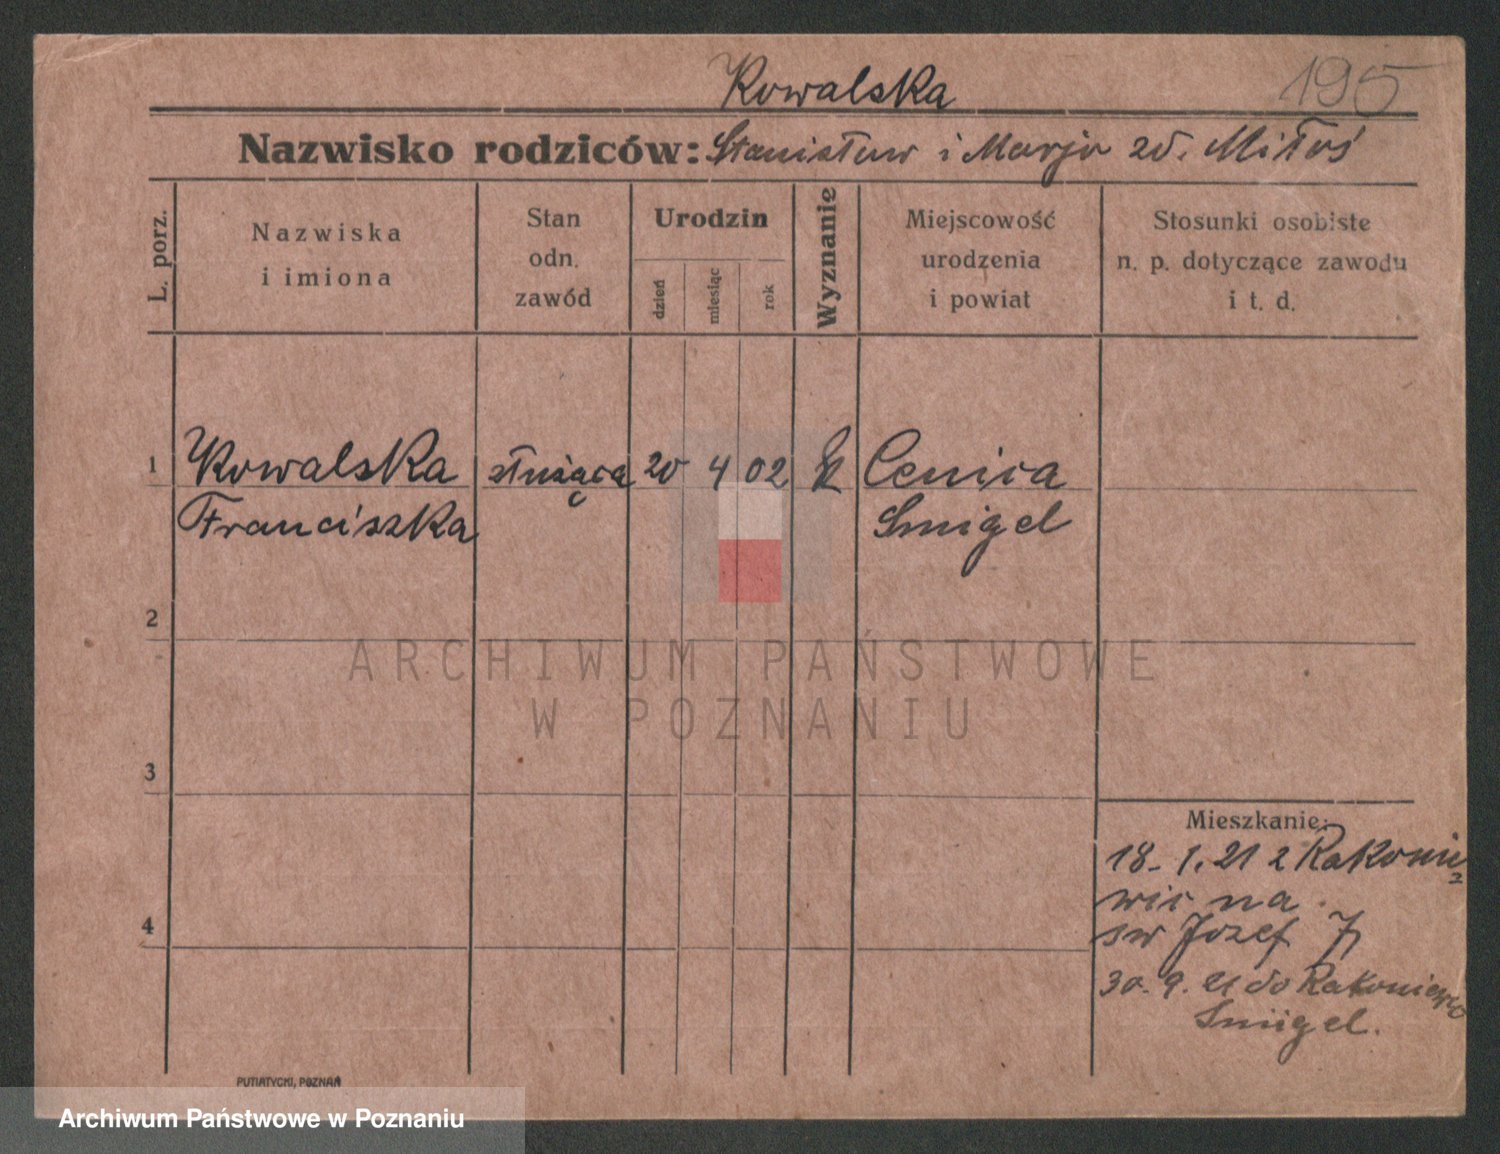 Kowalska
195
Nazwisko rodziców: Stanisław i Marja zd. Miłoś
L. porz.
Nazwiska
i imiona
Stan
odn.
zawód
Urodzin
dzień
miesiąc
rok
Wyznanie
Miejscowość
urodzenia
i powiat
Stosunki osobiste
n. p. dotyczące zawodu
i t. d.
1 Kowalska służąca 20 4 02 k
Franciszka Smigel
2
ARCHIWUM PAŃSTWOWE
W POZNANIU
3
Mieszkanie:
18. 1. 21 z Rakonie
wic na
św Józef 7
4
30. 9. 21 do Rakoniewic
Smigel.
PUTIATYCKI, POZNAŃ
Archiwum Państwowe w Poznaniu